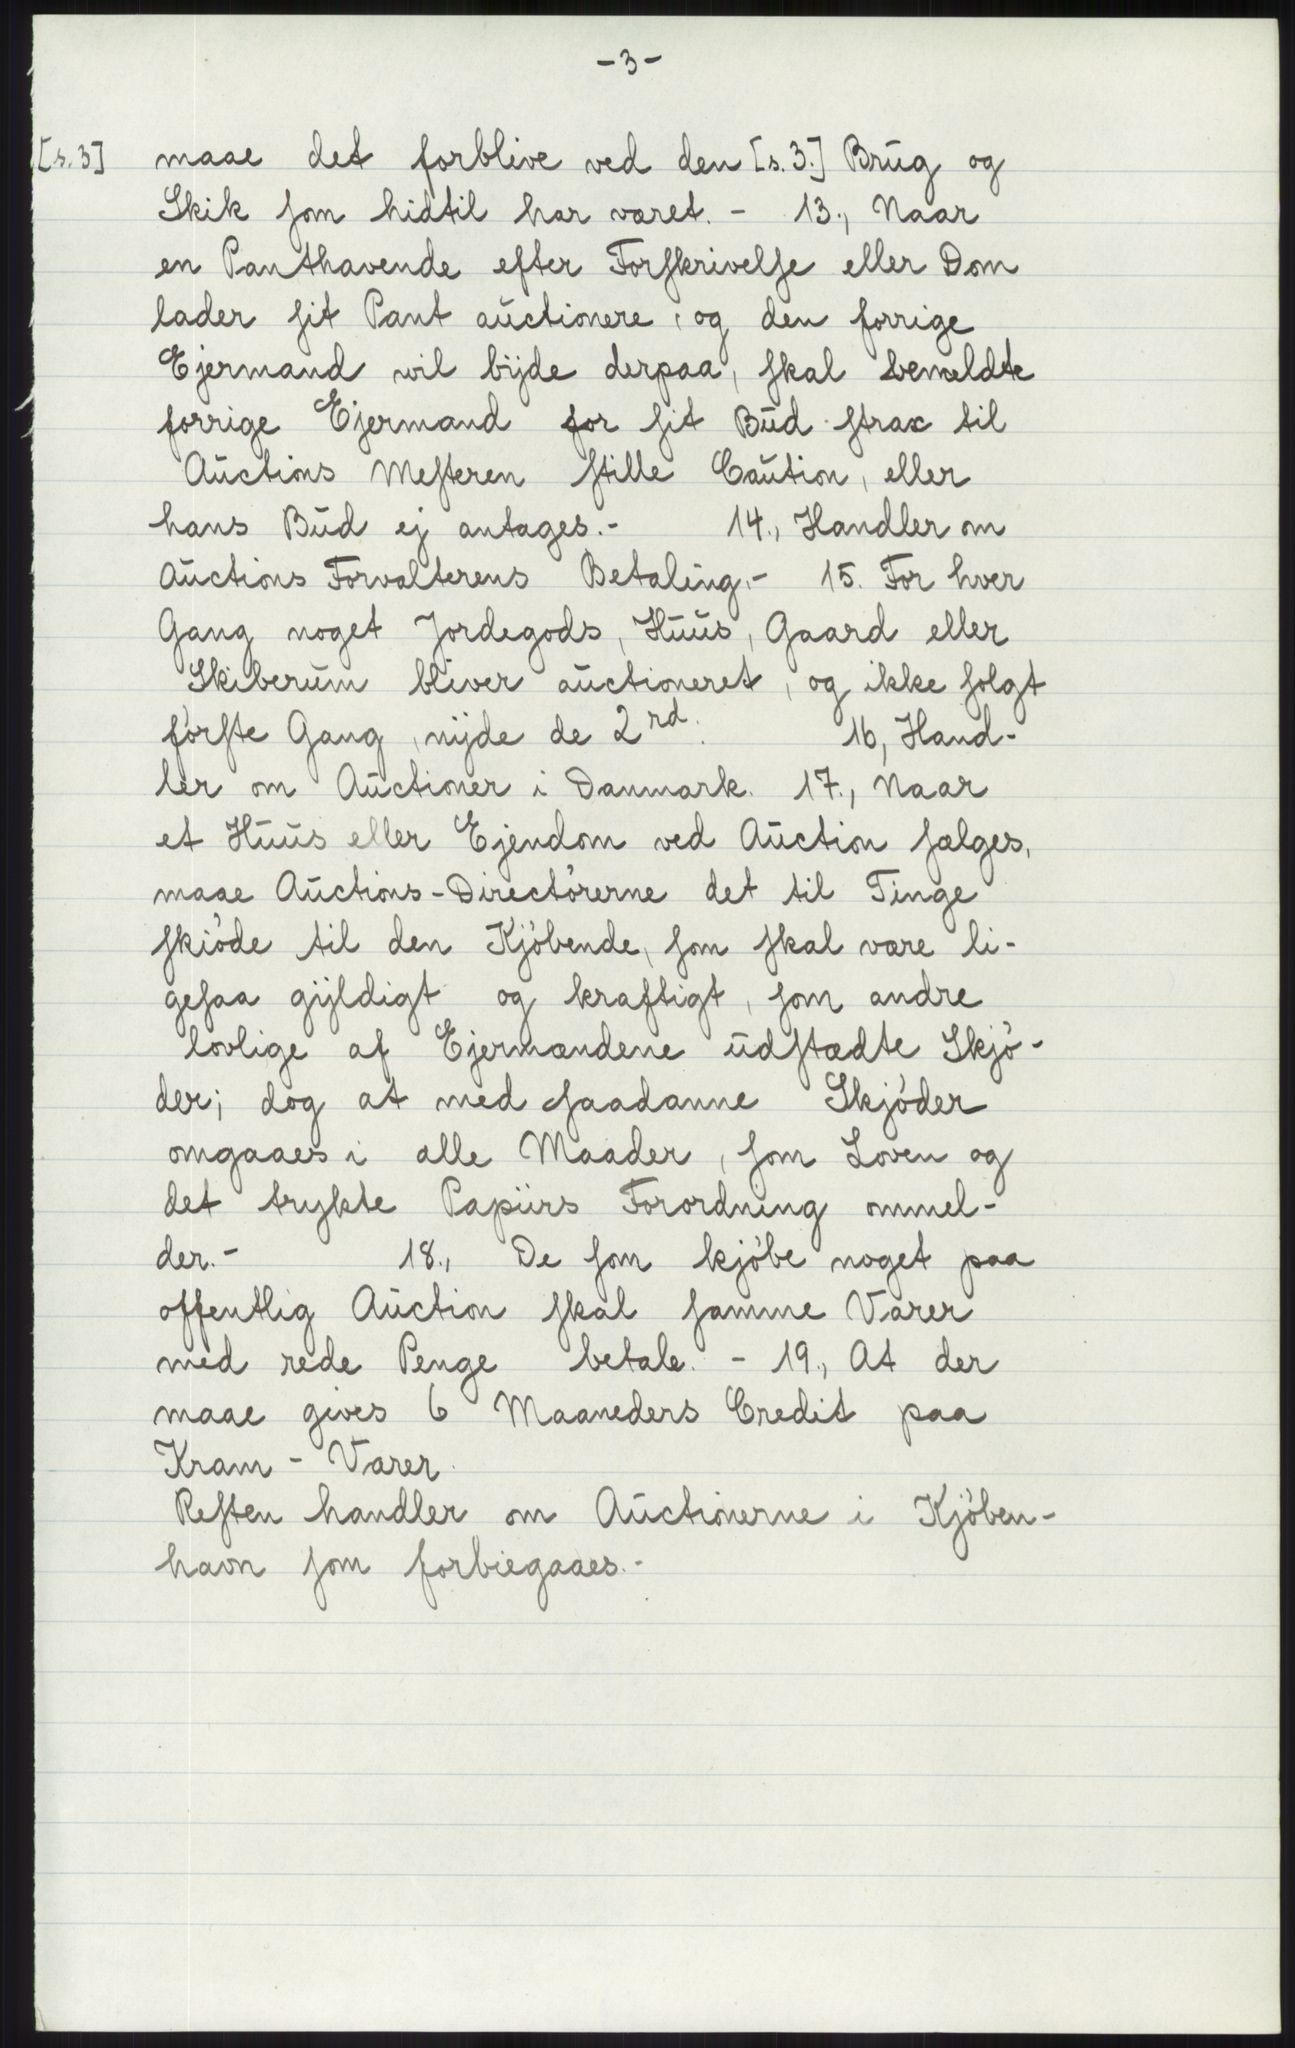 -3-
[s.3] maae det forblive ved den [s.3.] Brug og
Skik som hidtil har været. - 13., Naar
en Panthavende efter Forskrivelse eller Dom
lader sit Pant auctionere, og den forrige
Ejermand vil bÿde derpaa, skal bemeldte
forrige Ejermand for sit Bud strax til
Auctions Mesteren stille Caution, eller
hans Bud ej antages.- 14., Handler om
Auctions Forvalterens Betaling.- 15. For hver
Gang noget Jordegods, Huus, Gaard eller
Skiberum bliver auctioneret, og ikke solgt
første Gang, nÿde de 2 rd. 16, Hand-
ler om Auctioner i Danmark. 17., Naar
et Huus eller Ejendom ved Auction sælges,
maae Auctions-Directørerne det til Tinge
skiøde til den Kjøbende, som skal være li-
gesaa gÿldigt og kraftigt, som andre
lovlige af Ejermændene udstædte Skjø-
der; dog at med saadanne Skjøder
omgaaes i alle Maader, som Loven og
det trykte Papiirs Forordning ommel-
der.- 18., De som kjøbe noget paa
offentlig Auction skal samme Varer
med rede Penge betale. - 19., At der
maae gives 6 Maaneders Credit paa
Kram - Varer.
Resten handler om Auctionerne i Kjøben-
havn som forbiegaaes.-